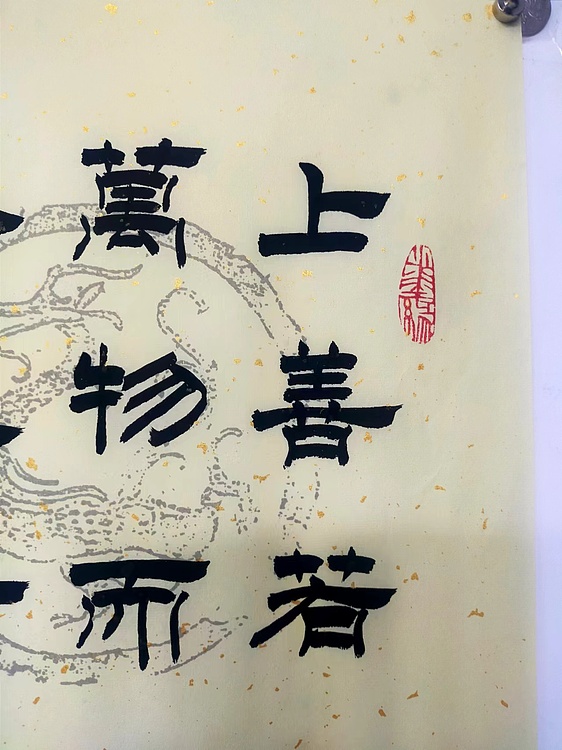 上善若
萬物而